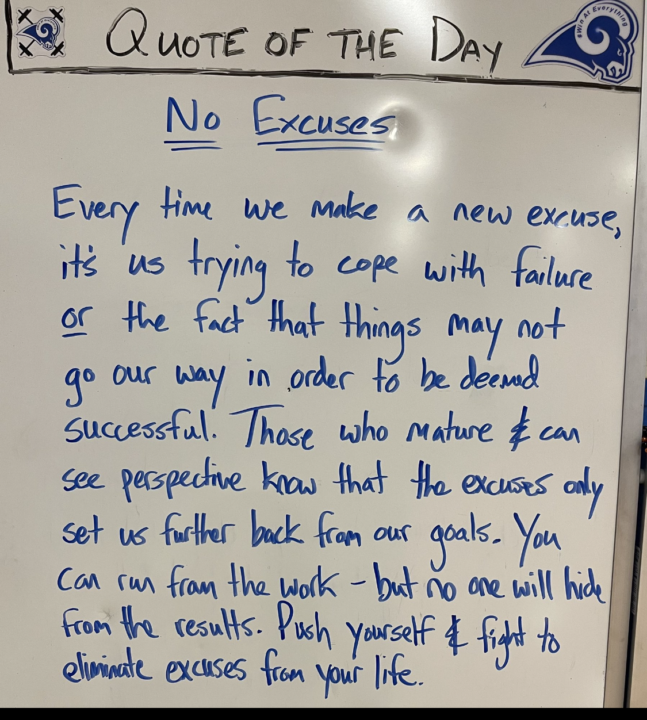 Quote of the Day
#Win At Everything
No Excuses
Every time we make a new excuse,
it's us trying to cope with failure
or the fact that things may not
go our way in order to be deemed
successful. Those who mature & can
see perspective know that the excuses only
set us further back from our goals. You
can run from the work - but no one will hide
from the results. Push yourself & fight to
eliminate excuses from your life.